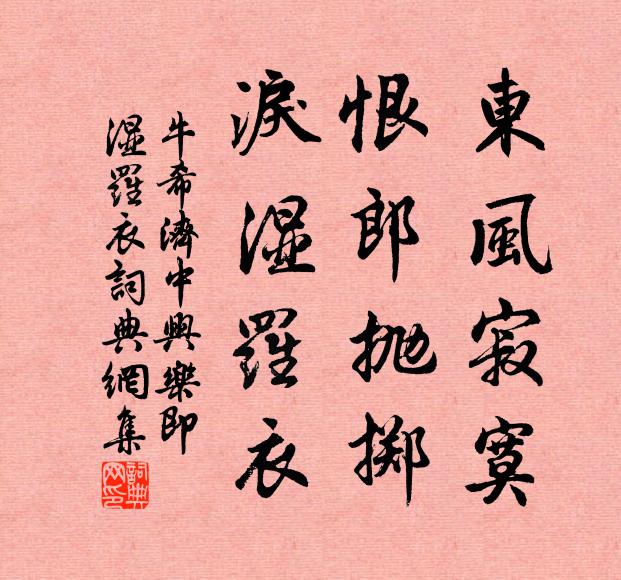 東風寂寞
恨郎抛擲
淚湿羅衣
牛希濟中興樂即
湿羅衣詞典網集
詞典网印